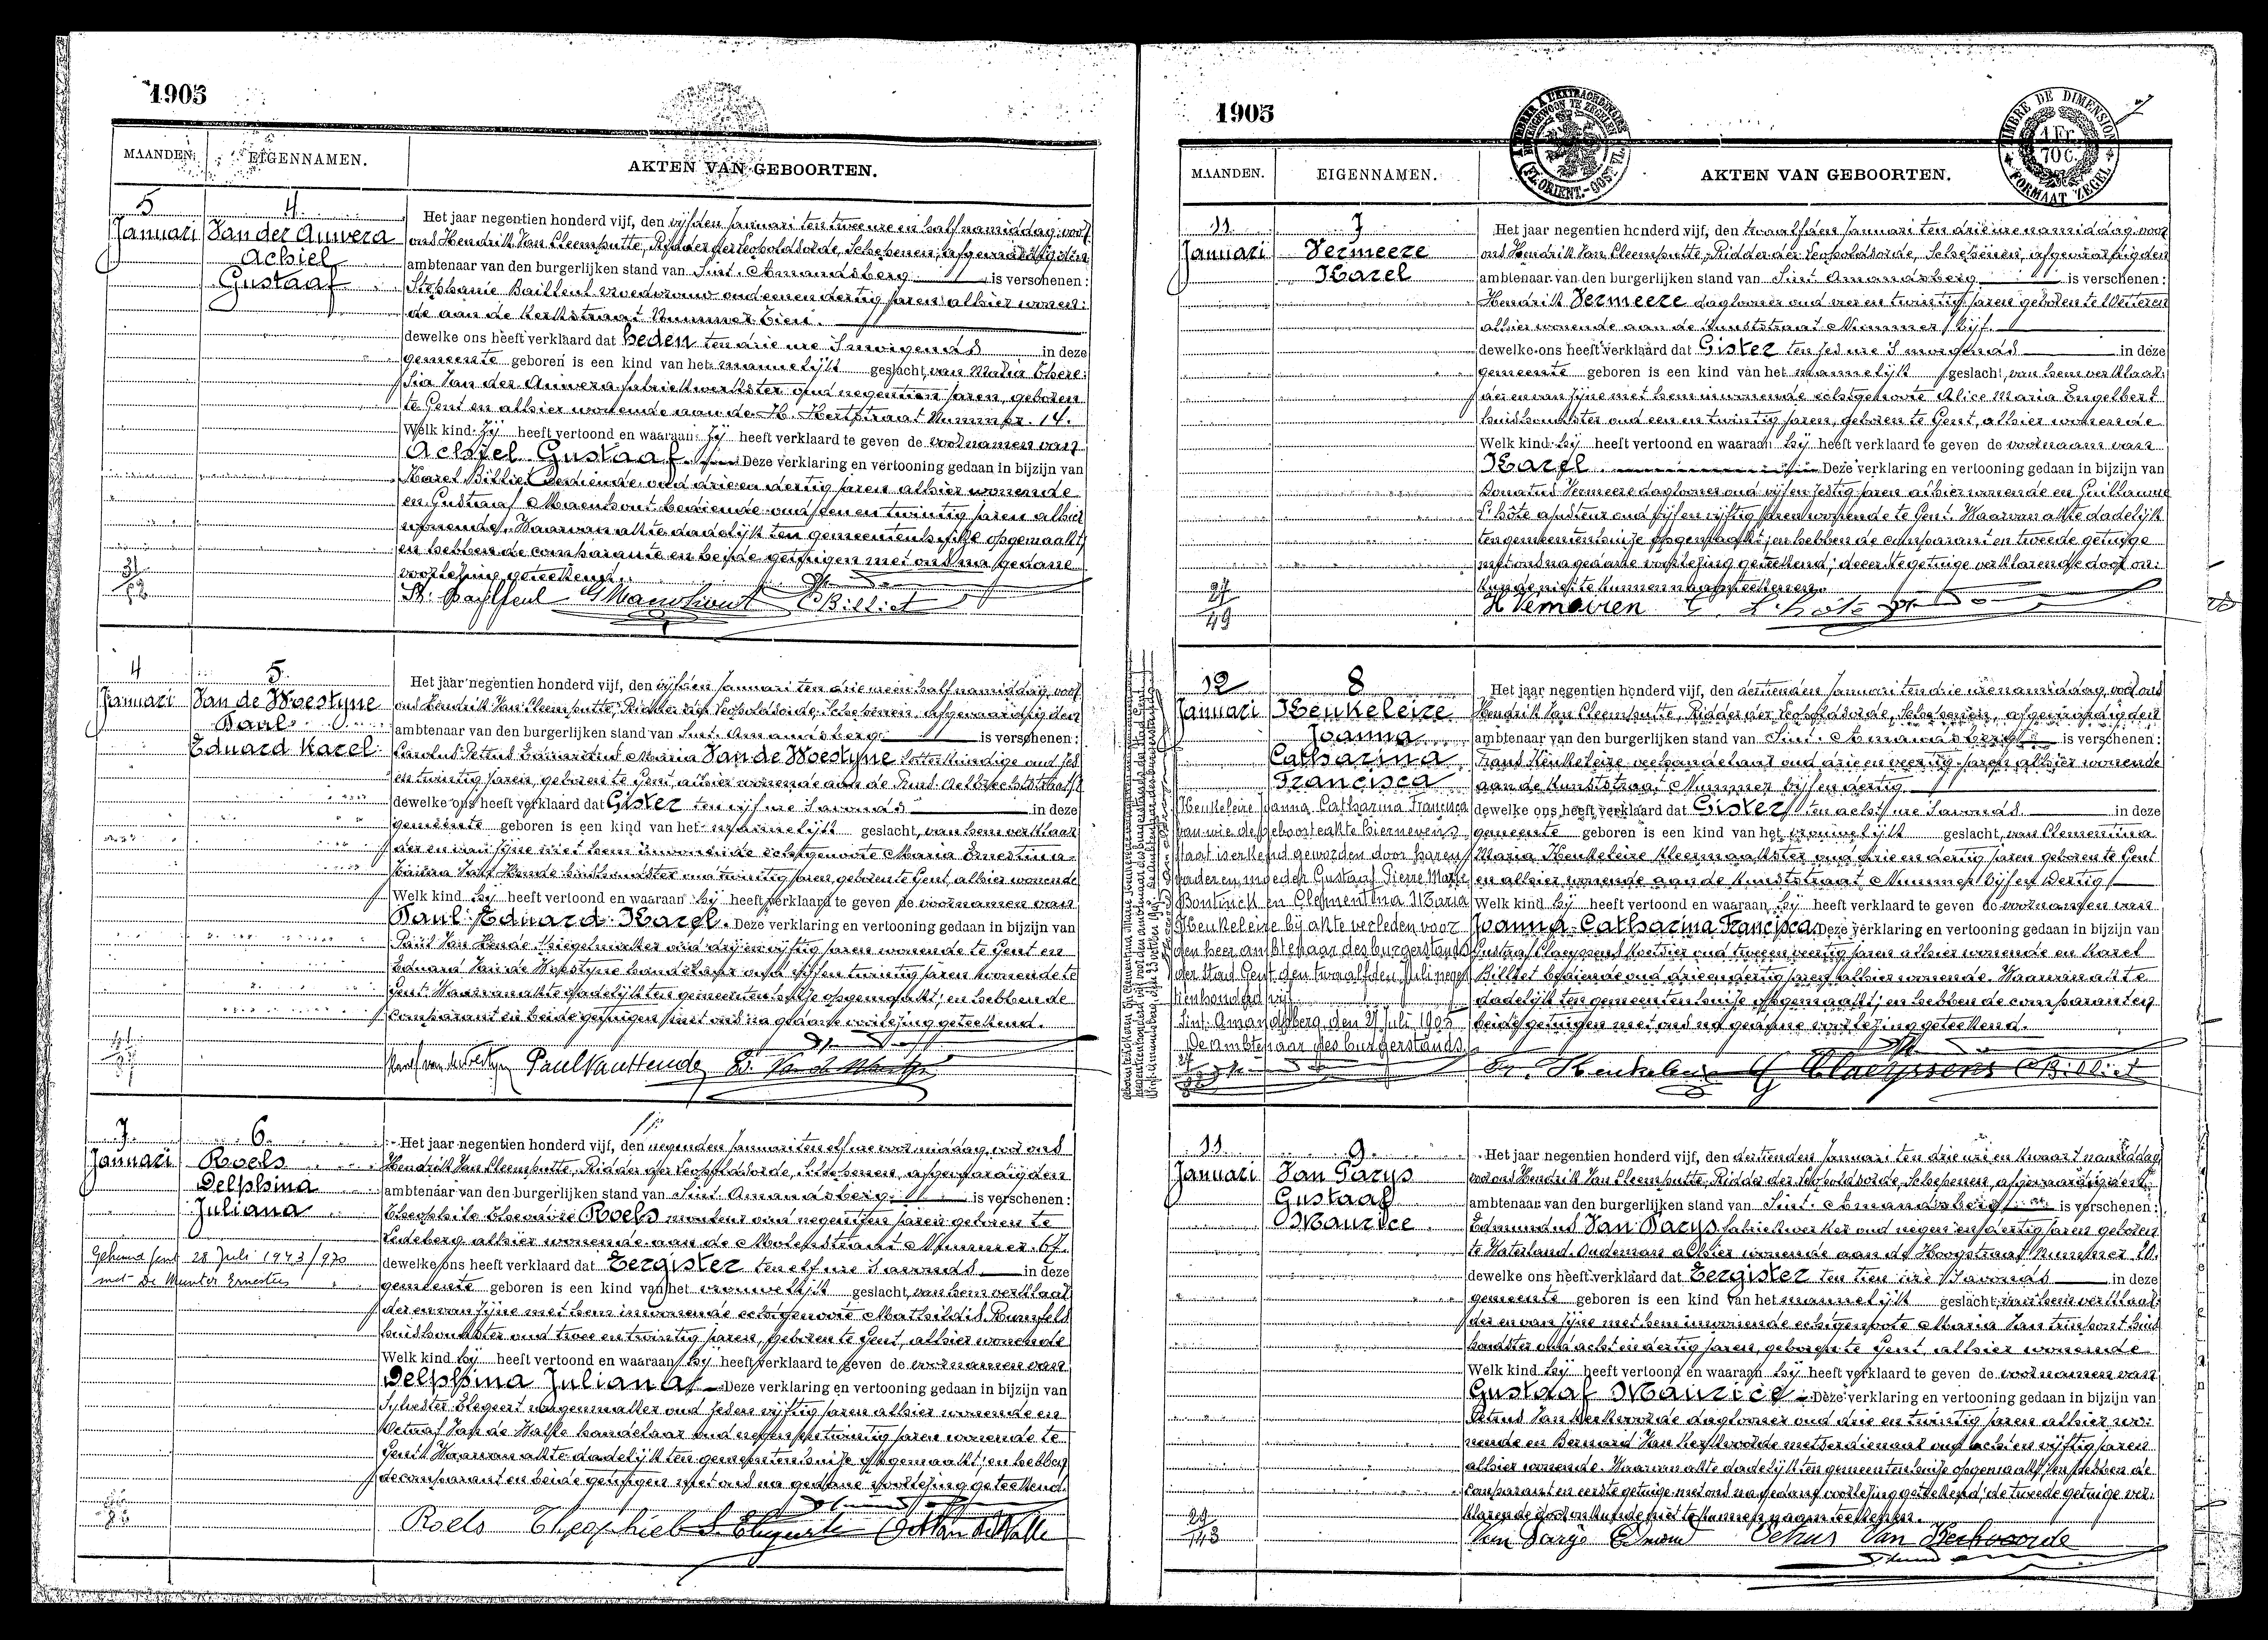 1905
MAANDEN. EIGENNAMEN. AKTEN VAN GEBOORTEN.
5 4
Januari Van der Auwera
Achiel
Gustaaf
Het jaar negentien honderd vijf, den vijfden Januari ten twee ure en half namiddag, voor
ons Hendrik Van Cleemputte, Ridder der Leopoldsorde, Schepenen, afgevaardigden
ambtenaar van den burgerlijken stand van Sint-Amandsberg is verschenen:
Stephanie Bailleul vroedvrouw oud eenen dertig jaren alhier wonen-
de aan de Kerkstraat Nummer tien.
dewelke ons heeft verklaard dat heden ten drie ure 's morgends in deze
gemeente geboren is een kind van het mannelijk geslacht, van Maria There-
sia Van der Auwera fabriekwerkster oud negentien jaren, geboren
te Gent en alhier wonende aan de H. Hertstraat Nummer 14.
Welk kind zij heeft vertoond en waaraan zij heeft verklaard te geven de voornamen van
Achiel Gustaaf. Deze verklaring en vertooning gedaan in bijzijn van
Karel Billiet bediende oud drie en dertig jaren alhier wonende
en Gustaaf Maenhout bediende oud een en twintig jaren alhier
wonende. Waarvan akte dadelijk ten gemeentenhuize opgemaakt,
en hebben de comparante en beide getuigen met ons na gedane
voorlezing geteekend.
St. Baylleul G Maenhout C Billiet
4 5
Januari Van de Woestyne
Paul
Eduard Karel
Het jaar negentien honderd vijf, den vijfden Januari ten drie ure en half namiddag, voor
ons Hendrik Van Cleemputte, Ridder der Leopoldsorde, Schepenen, afgevaardigden
ambtenaar van den burgerlijken stand van Sint-Amandsberg is verschenen:
Carolus Petrus Eduardus Maria Van de Woestyne letterkundige oud zes
en twintig jaren, geboren te Gent, alhier wonende aan de
dewelke ons heeft verklaard dat Gister ten vijf ure 's avonds in deze
gemeente geboren is een kind van het mannelijk geslacht, van hem verklaar-
der en van zijne met hem inwonende echtgenoote Maria Ernestina
Van Hende huishoudster oud twintig jaren, geboren te Gent, alhier wonende
Welk kind hij heeft vertoond en waaraan hij heeft verklaard te geven de voornamen van
Paul Eduard Karel. Deze verklaring en vertooning gedaan in bijzijn van
Paul Van Hende oud en vijftig jaren wonende te Gent en
Eduard Van de Woestyne handelaar oud vijf en twintig jaren wonende te
Gent. Waarvan akte dadelijk ten gemeentenhuize opgemaakt, en hebben de
comparant en beide getuigen met ons na gedane voorlezing geteekend.
Karel van de Woestyne Paul Van Hende
7 6
Januari Roels
Delphina
Juliana
Gehuwd Gent 28 Juli 1943/970
met De Munter Ernestus
Het jaar negentien honderd vijf, den negenden Januari ten elf ure voormiddag, voor ons
Hendrik Van Cleemputte, Ridder der Leopoldsorde, Schepenen, afgevaardigden
ambtenaar van den burgerlijken stand van Sint-Amandsberg is verschenen:
Theophile Theodore Roels monteur oud negentien jaren geboren te
Ledeberg alhier wonende aan de Molenstraat Nummer 67.
dewelke ons heeft verklaard dat Eergister ten elf ure 's avonds in deze
gemeente geboren is een kind van het vrouwelijk geslacht, van hem verklaar-
der en van zijne met hem inwonende echtgenoote Mathildis
huishoudster oud twee en twintig jaren, geboren te Gent, alhier wonende
Welk kind hij heeft vertoond en waaraan hij heeft verklaard te geven de voornamen van
Delphina Juliana. Deze verklaring en vertooning gedaan in bijzijn van
Sylvester Elegeert wagenmaker oud zes en vijftig jaren alhier wonende en
Octaaf Van de Walle handelaar oud negen en twintig jaren wonende te
Gent. Waarvan akte dadelijk ten gemeentenhuize opgemaakt, en hebben
de comparant en beide getuigen met ons na gedane voorlezing geteekend.
Roels Theophiel S. Elegeert Oct Van de Walle
1905
A TIMBRER A L'EXTRAORDINAIRE
(FL. ORIENT.-OOST VL.)
TIMBRE DE DIMENSION
1 Fr.
70 C.
FORMAAT ZEGEL
MAANDEN. EIGENNAMEN. AKTEN VAN GEBOORTEN.
11 7
Januari Vermeere
Karel
27
49
Het jaar negentien honderd vijf, den twaalfden Januari ten drie ure namiddag, voor
ons Hendrik Van Cleemputte, Ridder der Leopoldsorde, Schepenen, afgevaardigden
ambtenaar van den burgerlijken stand van Sint-Amandsberg is verschenen:
Hendrik Vermeere daglooner oud vier en twintig jaren geboren te Wetteren
alhier wonende aan de Kunststraat Nummer vijf.
dewelke ons heeft verklaard dat Gister ten zes ure 's morgends in deze
gemeente geboren is een kind van het mannelijk geslacht, van hem verklaar-
der en van zijne met hem inwonende echtgenoote Alice Maria Engelbert
huishoudster oud een en twintig jaren, geboren te Gent, alhier wonende
Welk kind hij heeft vertoond en waaraan hij heeft verklaard te geven de voornaam van
Karel. Deze verklaring en vertooning gedaan in bijzijn van
Donatus Vermeere daglooner oud vijf en zestig jaren alhier wonende en Guillaume
L'hôte ajusteur oud vijf en vijftig jaren wonende te Gent. Waarvan akte dadelijk
ten gemeentenhuize opgemaakt, en hebben de comparant en tweede getuige
met ons na gedane voorlezing geteekend; de eerste getuige verklarende door on-
kunde niet te kunnen naamteekenen.
H Vemeiren L'hôte
12 8
Januari Heukeleire
Joanna
Catharina
Francisca
Heukeleire Joanna Catharina Francisca
van wie de geboorteakte hiernevens
staat is erkend geworden door haren
vader en moeder Gustaaf Pierre Marie
Bontinck en Clementina Maria
Heukeleire bij akte verleden voor
den heer ambtenaar des burgerstands
der Stad Gent den twaalfden Juli negen
tienhonderd vijf
Sint-Amandsberg, den 27 Juli 1905
De Ambtenaar des burgerstands,
Het jaar negentien honderd vijf, den dertienden Januari ten drie ure namiddag, voor ons
Hendrik Van Cleemputte, Ridder der Leopoldsorde, Schepenen, afgevaardigden
ambtenaar van den burgerlijken stand van Sint-Amandsberg is verschenen:
Frans Heukeleire verhandelaar oud drie en veertig jaren alhier wonende
aan de Kunststraat Nummer vijf en dertig
dewelke ons heeft verklaard dat Gister ten acht ure 's avonds in deze
gemeente geboren is een kind van het vrouwelijk geslacht, van Clementina
Maria Heukeleire kleermaakster oud drie en dertig jaren geboren te Gent
en alhier wonende aan de Kunststraat Nummer vijf en dertig
Welk kind hij heeft vertoond en waaraan hij heeft verklaard te geven de voornamen van
Joanna Catharina Francisca. Deze verklaring en vertooning gedaan in bijzijn van
Gustaaf Claeyssens koetsier oud twee en veertig jaren alhier wonende en Karel
Billiet bediende oud drie en dertig jaren alhier wonende. Waarvan akte
dadelijk ten gemeentenhuize opgemaakt, en hebben de comparant en
beide getuigen met ons na gedane voorlezing geteekend.
Fr. Heukeleire G Claeyssens C Billiet
11 9
Januari Van Parys
Gustaaf
Maurice
29
143
Het jaar negentien honderd vijf, den dertienden Januari ten drie ure en kwart namiddag
voor ons Hendrik Van Cleemputte, Ridder der Leopoldsorde, Schepenen, afgevaardigden
ambtenaar van den burgerlijken stand van Sint-Amandsberg is verschenen:
Edmundus Van Parys fabriekwerker oud negen en dertig jaren geboren
te Waterland-Oudeman alhier wonende aan de Hoogstraat Nummer 20.
dewelke ons heeft verklaard dat Eergister ten tien ure 's avonds in deze
gemeente geboren is een kind van het mannelijk geslacht, van hem verklaar-
der en van zijne met hem inwonende echtgenoote Maria Van Trinhont huis
houdster oud acht en dertig jaren, geboren te Gent, alhier wonende
Welk kind hij heeft vertoond en waaraan hij heeft verklaard te geven de voornamen van
Gustaaf Maurice. Deze verklaring en vertooning gedaan in bijzijn van
Petrus Van Kerkvoorde daglooner oud drie en twintig jaren alhier wo-
nende en Bernard Van Kerkvoorde metserdienaar oud acht en vijftig jaren
alhier wonende. Waarvan akte dadelijk ten gemeentenhuize opgemaakt, en hebben de
comparant en eerste getuige met ons na gedane voorlezing geteekend; de tweede getuige ver-
klarende door onkunde niet te kunnen naamteekenen.
Van Parys Edmond Petrus Van Kerkvoorde